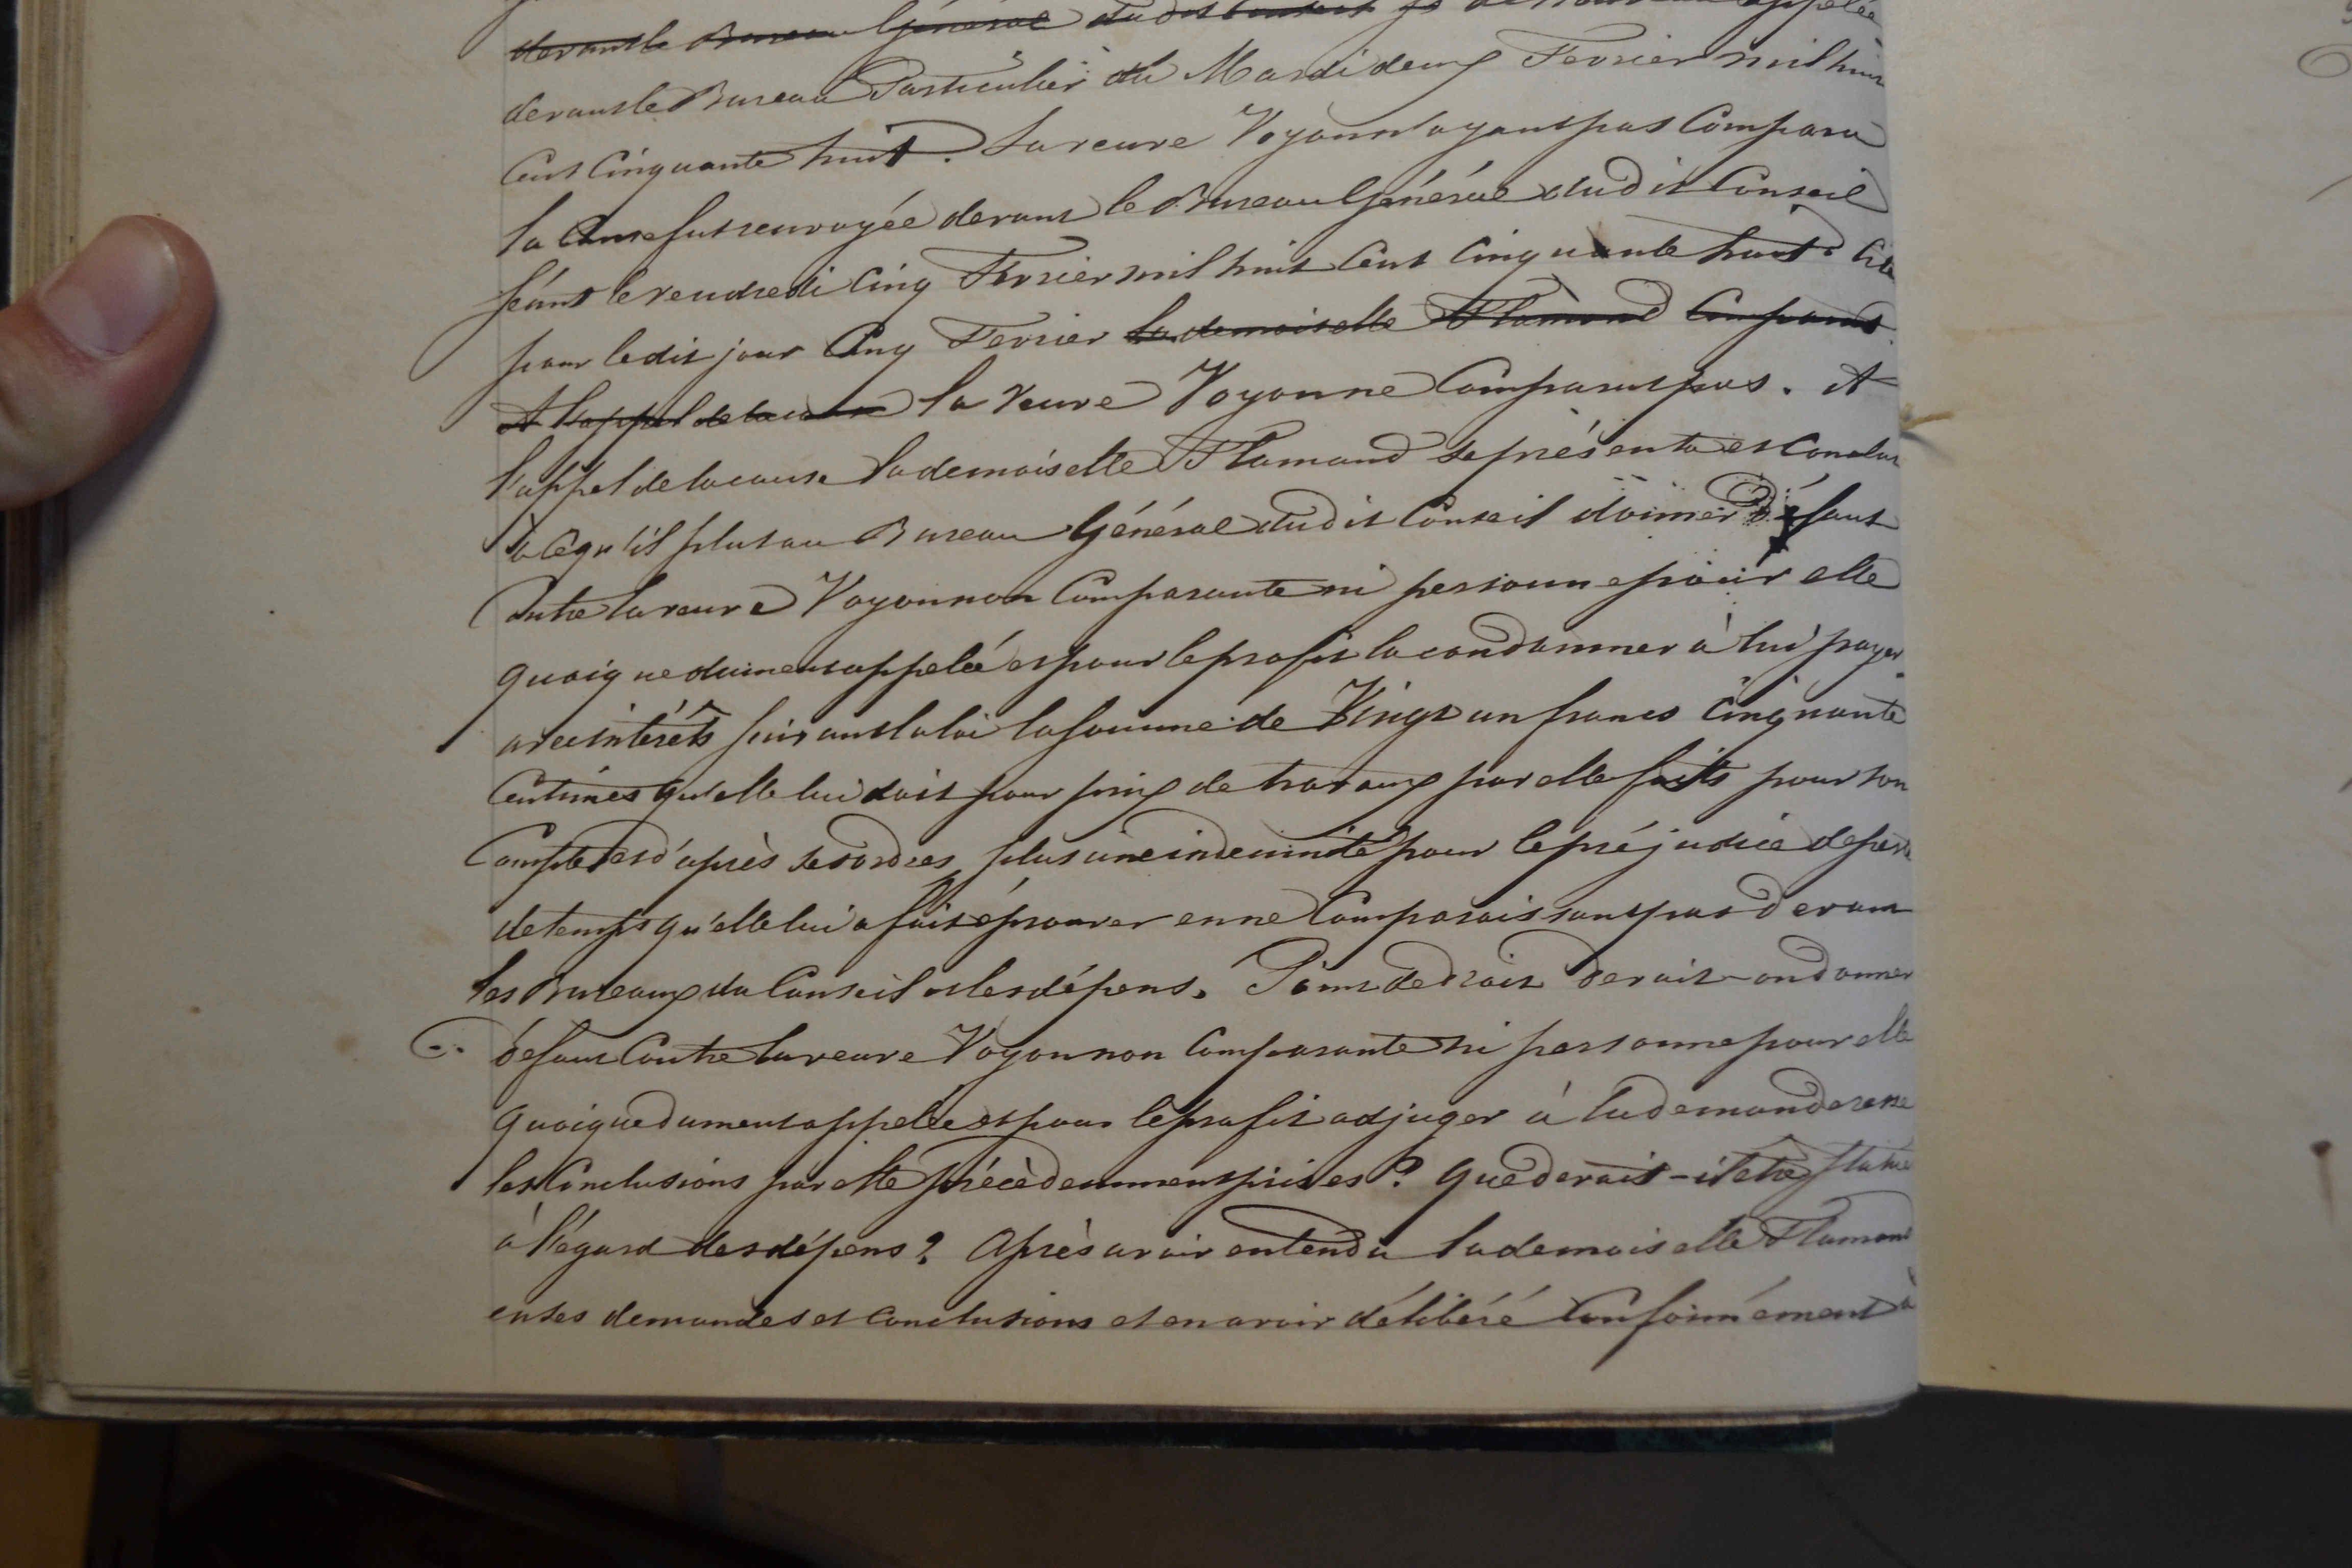 devant le Bureau Général dudit Conseil appelée
devant le Bureau Particulier du Mardi deux Fevrier mil huit
cent cinquante huit. La veuve Voyon n'ayant pas comparu
la cause fut renvoyée devant le Bureau Général dudit Conseil
séant le vendredi cinq Fevrier mil huit cent cinquante huit. Citée
pour ledit jour cinq Fevrier la demoiselle Flamand comparut
A l'appel de la cause la veuve Voyonne comparut pas. A
l'appel de la cause la demoiselle Flamand se présenta et conclut
à ce qu'il plut au Bureau Général dudit Conseil donner défaut
contre la veuve Voyon non comparante ni personne pour elle
quoique dument appelée et pour le profit la condamner à lui payer
avec intérêts suivant la loi la somme de Vingt un francs cinquante
centimes qu'elle lui doit pour prix de travaux par elle faits pour son
compte et d'après ses ordres, plus une indemnité pour le préjudice de perte
de temps qu'elle lui a fait éprouver en ne comparaissant pas devant
les Bureaux du Conseil et les dépens. Point de droit Devait-on donner
défaut contre la veuve Voyon non comparante ni personne pour elle
quoique dument appelée et pour le profit adjuger à la demanderesse
les conclusions par elle précèdemment prises? Que devait-il être statué
à l'égard des dépens? Après avoir entendu la demoiselle Flamand
en ses demandes et conclusions et en avoir délibéré conformément à